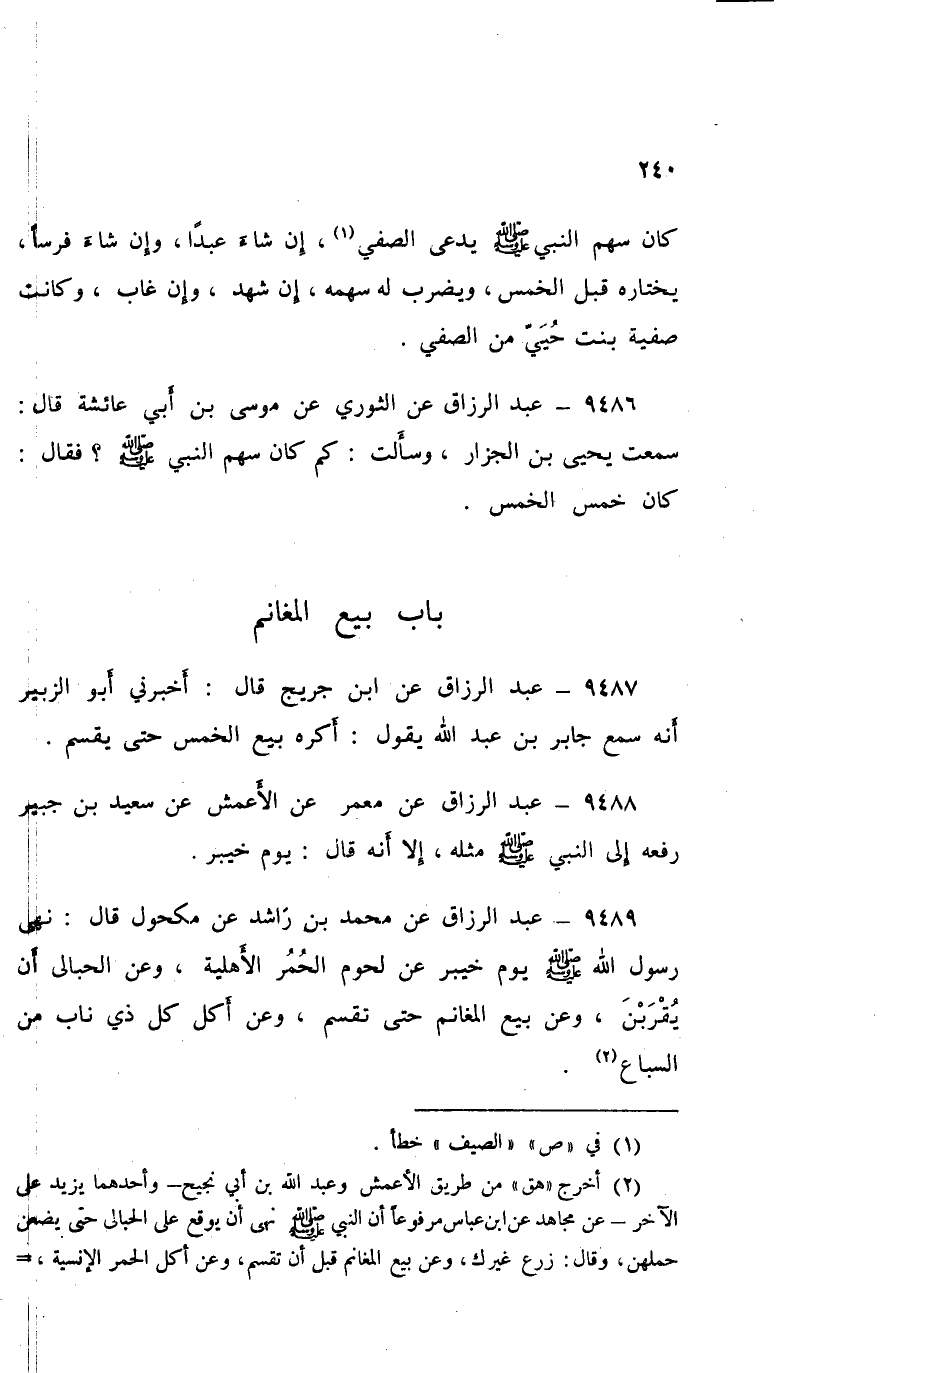 ٢٤٠
كان سهم النبي ﷺ يدعى الصفي(١)، إن شاء عبدًا، وإن شاء فرساً،
يختاره قبل الخمس، ويضرب له سهمه، إن شهد، وإن غاب، وكانت
صفية بنت حُيَيّ من الصفي.
٩٤٨٦ – عبد الرزاق عن الثوري عن موسى بن أبي عائشة قال:
سمعت يحيى بن الجزار، وسألت: كم كان سهم النبي ﷺ؟ فقال:
كان خمس الخمس.
باب بيع المغانم
٩٤٨٧ – عبد الرزاق عن ابن جريج قال: أخبرني أبو الزبير
أنه سمع جابر بن عبد الله يقول: أكره بيع الخمس حتى يقسم.
٩٤٨٨ – عبد الرزاق عن معمر عن الأعمش عن سعيد بن جبير
رفعه إلى النبي ﷺ مثله، إلا أنه قال: يوم خيبر.
٩٤٨٩ – عبد الرزاق عن محمد بن راشد عن مكحول قال: نهى
رسول الله ﷺ يوم خيبر عن لحوم الحُمُر الأهلية، وعن الحبالى أن
يُقْرَبْنَ، وعن بيع المغانم حتى تقسم، وعن أكل كل ذي ناب من
السباع(٢).
(١) في «ص» «الصيف» خطأ.
(٢) أخرج «هق» من طريق الأعمش وعبد الله بن أبي نجيح– وأحدهما يزيد على
الآخر – عن مجاهد عن ابن عباس مرفوعاً أن النبي ﷺ نهى أن يوقع على الحبالى حتى يضعن
حملهن، وقال: زرع غيرك، وعن بيع المغانم قبل أن تقسم، وعن أكل الحمر الإنسية، =